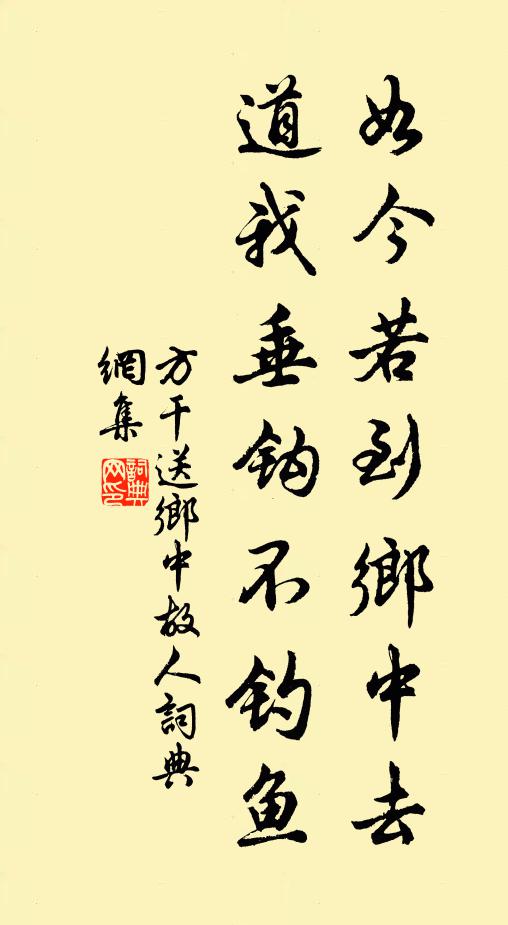 如今若到鄉中去
道我垂钩不钓鱼
方干送鄉中故人詞典
網集
詞典網印